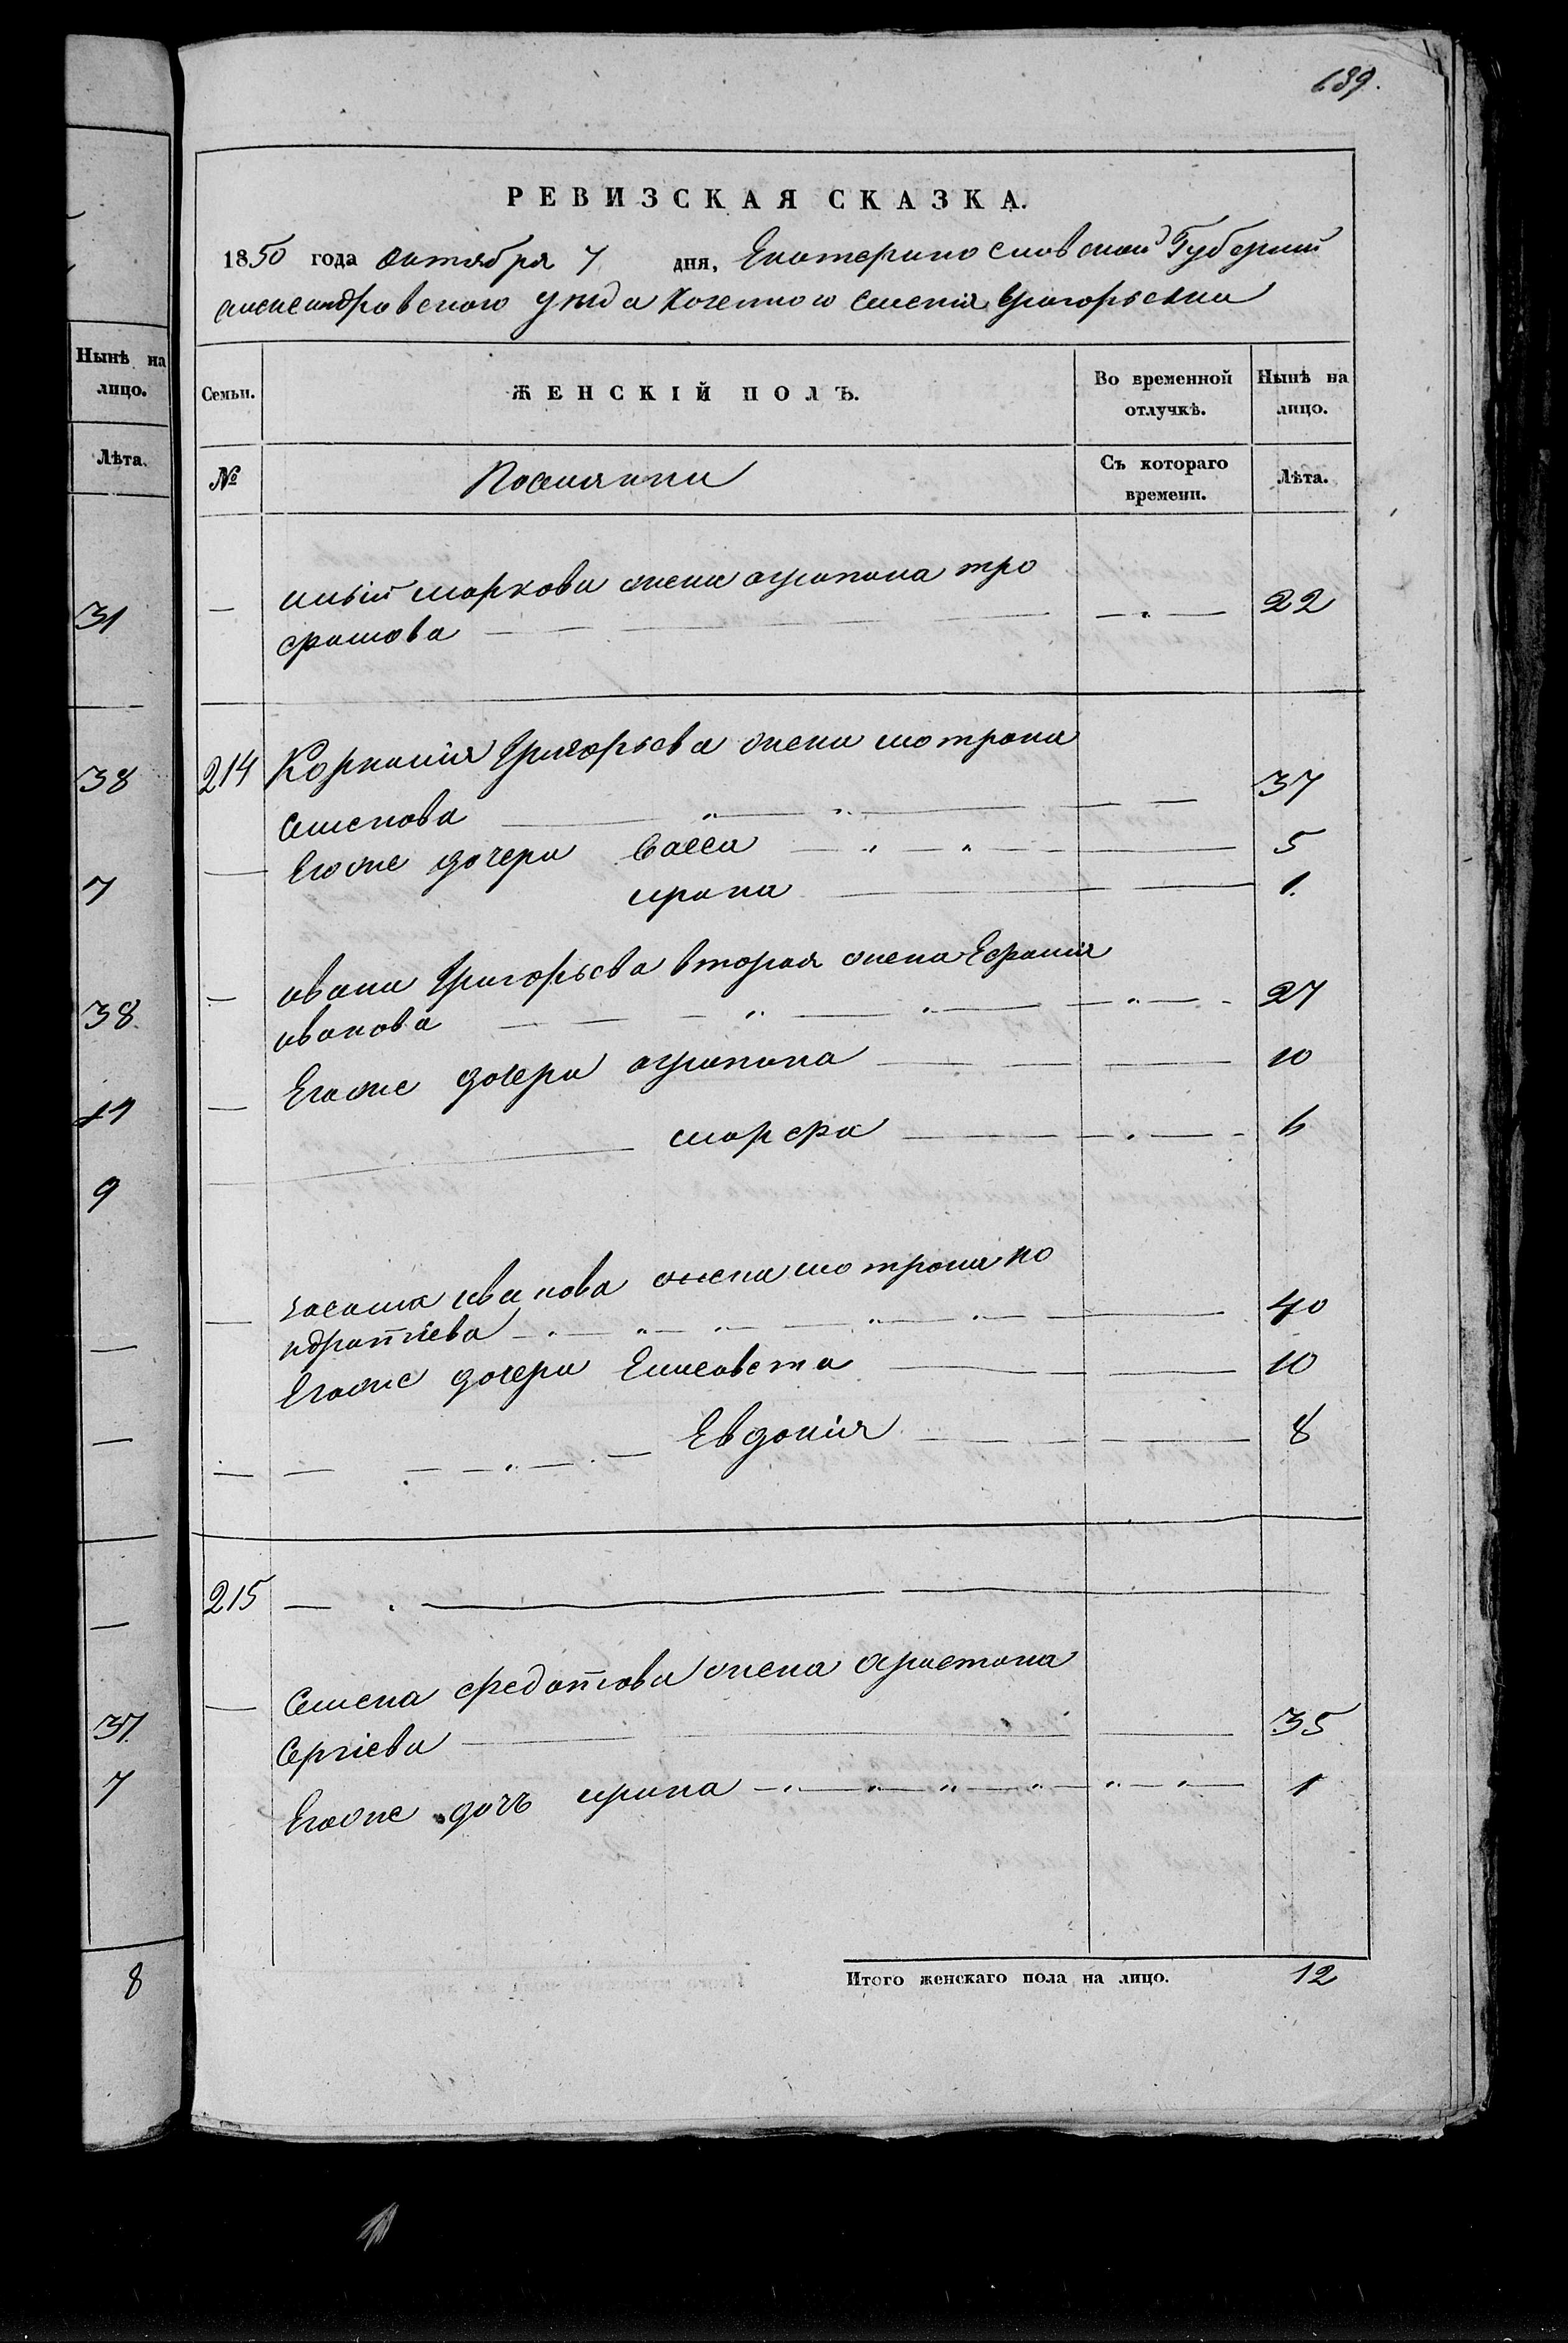 639.
РЕВИЗСКАЯ СКАЗКА.
1850 года октября 7 дня, Екатеринославской Губернии
александровского уезда казенного селения григорьевки
Нынѣ на лицо.
Семьи.
ЖЕНСКІЙ ПОЛЪ.
Во временной отлучкѣ.
Нынѣ на лицо.
Лѣта.
№
Поселянки
Съ котораго времени.
Лѣта.
31
— маркова жена агрипина тро
фимова — 22
38
214 Корнилия Григорьева жена мотрона
семенова — 37
Егоже дочери Васса — 5
7
ирина — 1.
— ивана Григорьева вторая жена Ефимия
38.
иванова — 27
— Егоже дочери агрипина — 10
11
марфа — 6
9
— иванова жена мотрона ко
ндратіева — 40
Егоже дочери Елисавета — 10
— Евдокія — 8
215 —
— Семена федотова жена
37.
Сергіева — 35
7
Егоже дочь ирина — 1
8
Итого женскаго пола на лицо. 12